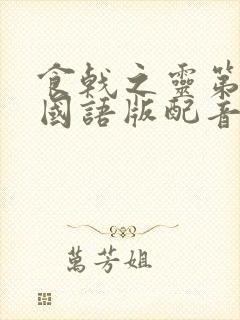 食戟之靈第
國語版配音
萬芳姐